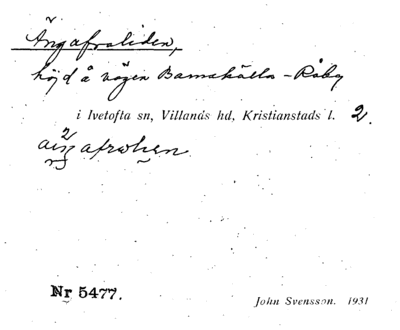 Ängafroliden,
höjd å vägen Barnakälla – Råby
i Ivetofta sn, Villands hd, Kristianstads l. 2.
Nr 5477.
John Svensson. 1931